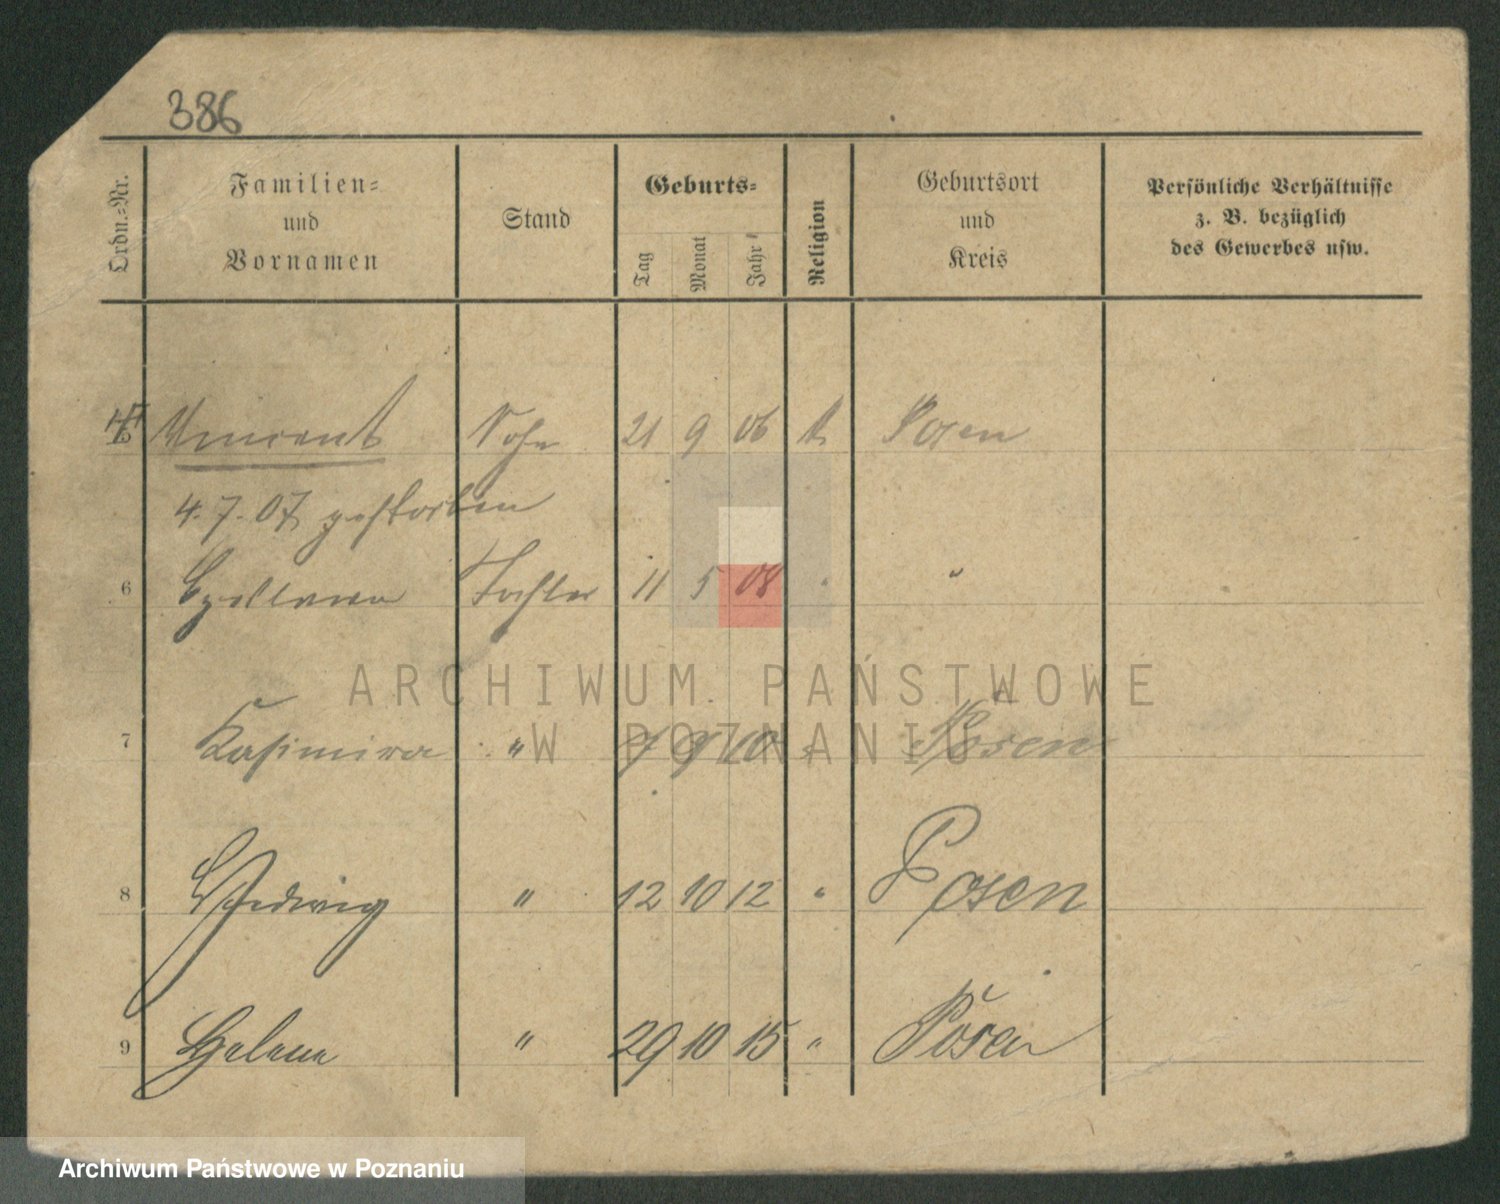 386
Ordn.-Nr.
Familien-
und
Vornamen
Stand
Geburts-
Tag
Monat
Jahr
Religion
Geburtsort
und
Kreis
Persönliche Verhältnisse
z. B. bezüglich
des Gewerbes usw.
5 Vincent Sohn 21 9 06 k Posen
4.7.07 gestorben
6 Tochter 11 5 08 " "
7 Kasimira " 7 9 10 " Posen
8 Hedwig " 12 10 12 " Posen
9 Helene " 29 10 15 " Posen
ARCHIWUM PAŃSTWOWE
W POZNANIU
Archiwum Państwowe w Poznaniu